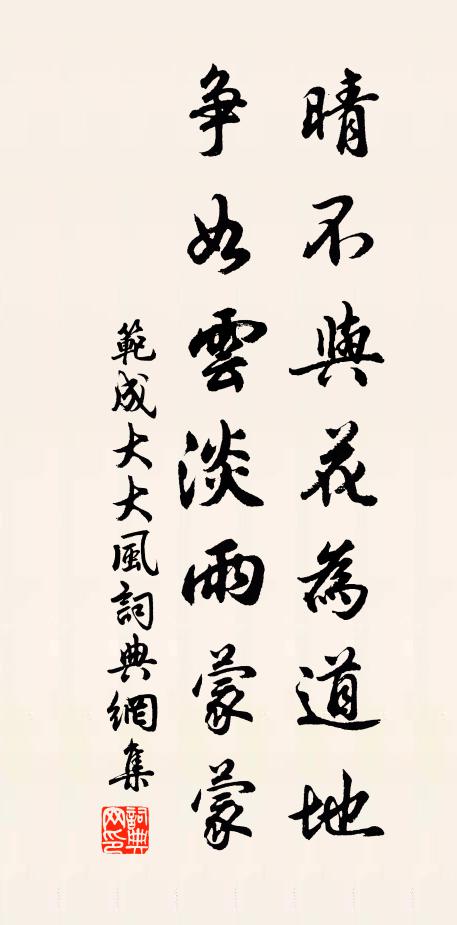 晴不與花為道地
争如雲淡雨蒙蒙
範成大大風詞典網集
詞典网印